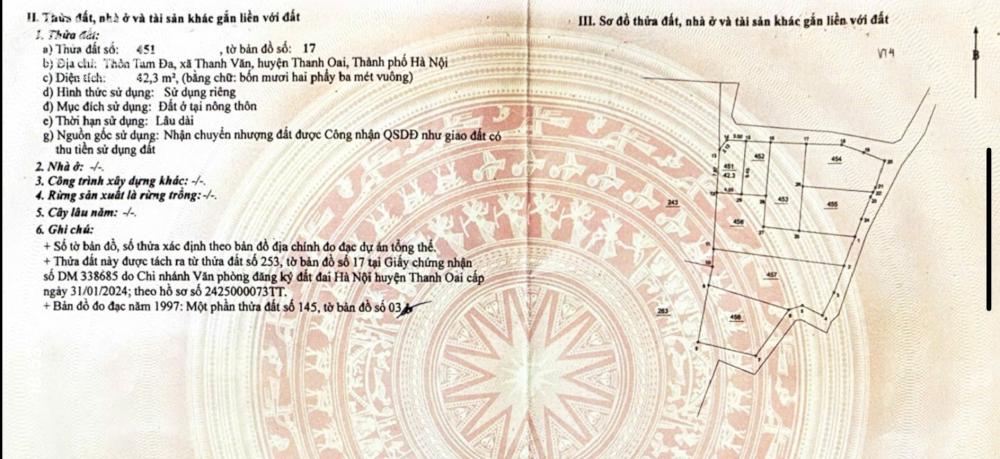 II. Thửa đất, nhà ở và tài sản khác gắn liền với đất
1. Thửa đất:
a) Thửa đất số: 451 , tờ bản đồ số: 17
b) Địa chỉ: Thôn Tam Đa, xã Thanh Văn, huyện Thanh Oai, Thành phố Hà Nội
c) Diện tích: 42,3 m², (bằng chữ: bốn mươi hai phẩy ba mét vuông)
d) Hình thức sử dụng: Sử dụng riêng
đ) Mục đích sử dụng: Đất ở tại nông thôn
e) Thời hạn sử dụng: Lâu dài
g) Nguồn gốc sử dụng: Nhận chuyển nhượng đất được Công nhận QSDĐ như giao đất có
thu tiền sử dụng đất
2. Nhà ở: -/-.
3. Công trình xây dựng khác: -/-.
4. Rừng sản xuất là rừng trồng: -/-.
5. Cây lâu năm: -/-.
6. Ghi chú:
+ Số tờ bản đồ, số thửa xác định theo bản đồ địa chính đo đạc dự án tổng thể.
+ Thửa đất này được tách ra từ thửa đất số 253, tờ bản đồ số 17 tại Giấy chứng nhận
số DM 338685 do Chi nhánh Văn phòng đăng ký đất đai Hà Nội huyện Thanh Oai cấp
ngày 31/01/2024; theo hồ sơ số 2425000073TT.
+ Bản đồ đo đạc năm 1997: Một phần thửa đất số 145, tờ bản đồ số 03
III. Sơ đồ thửa đất, nhà ở và tài sản khác gắn liền với đất
B
451
42.3
452
454
243
453
455
456
457
263
458